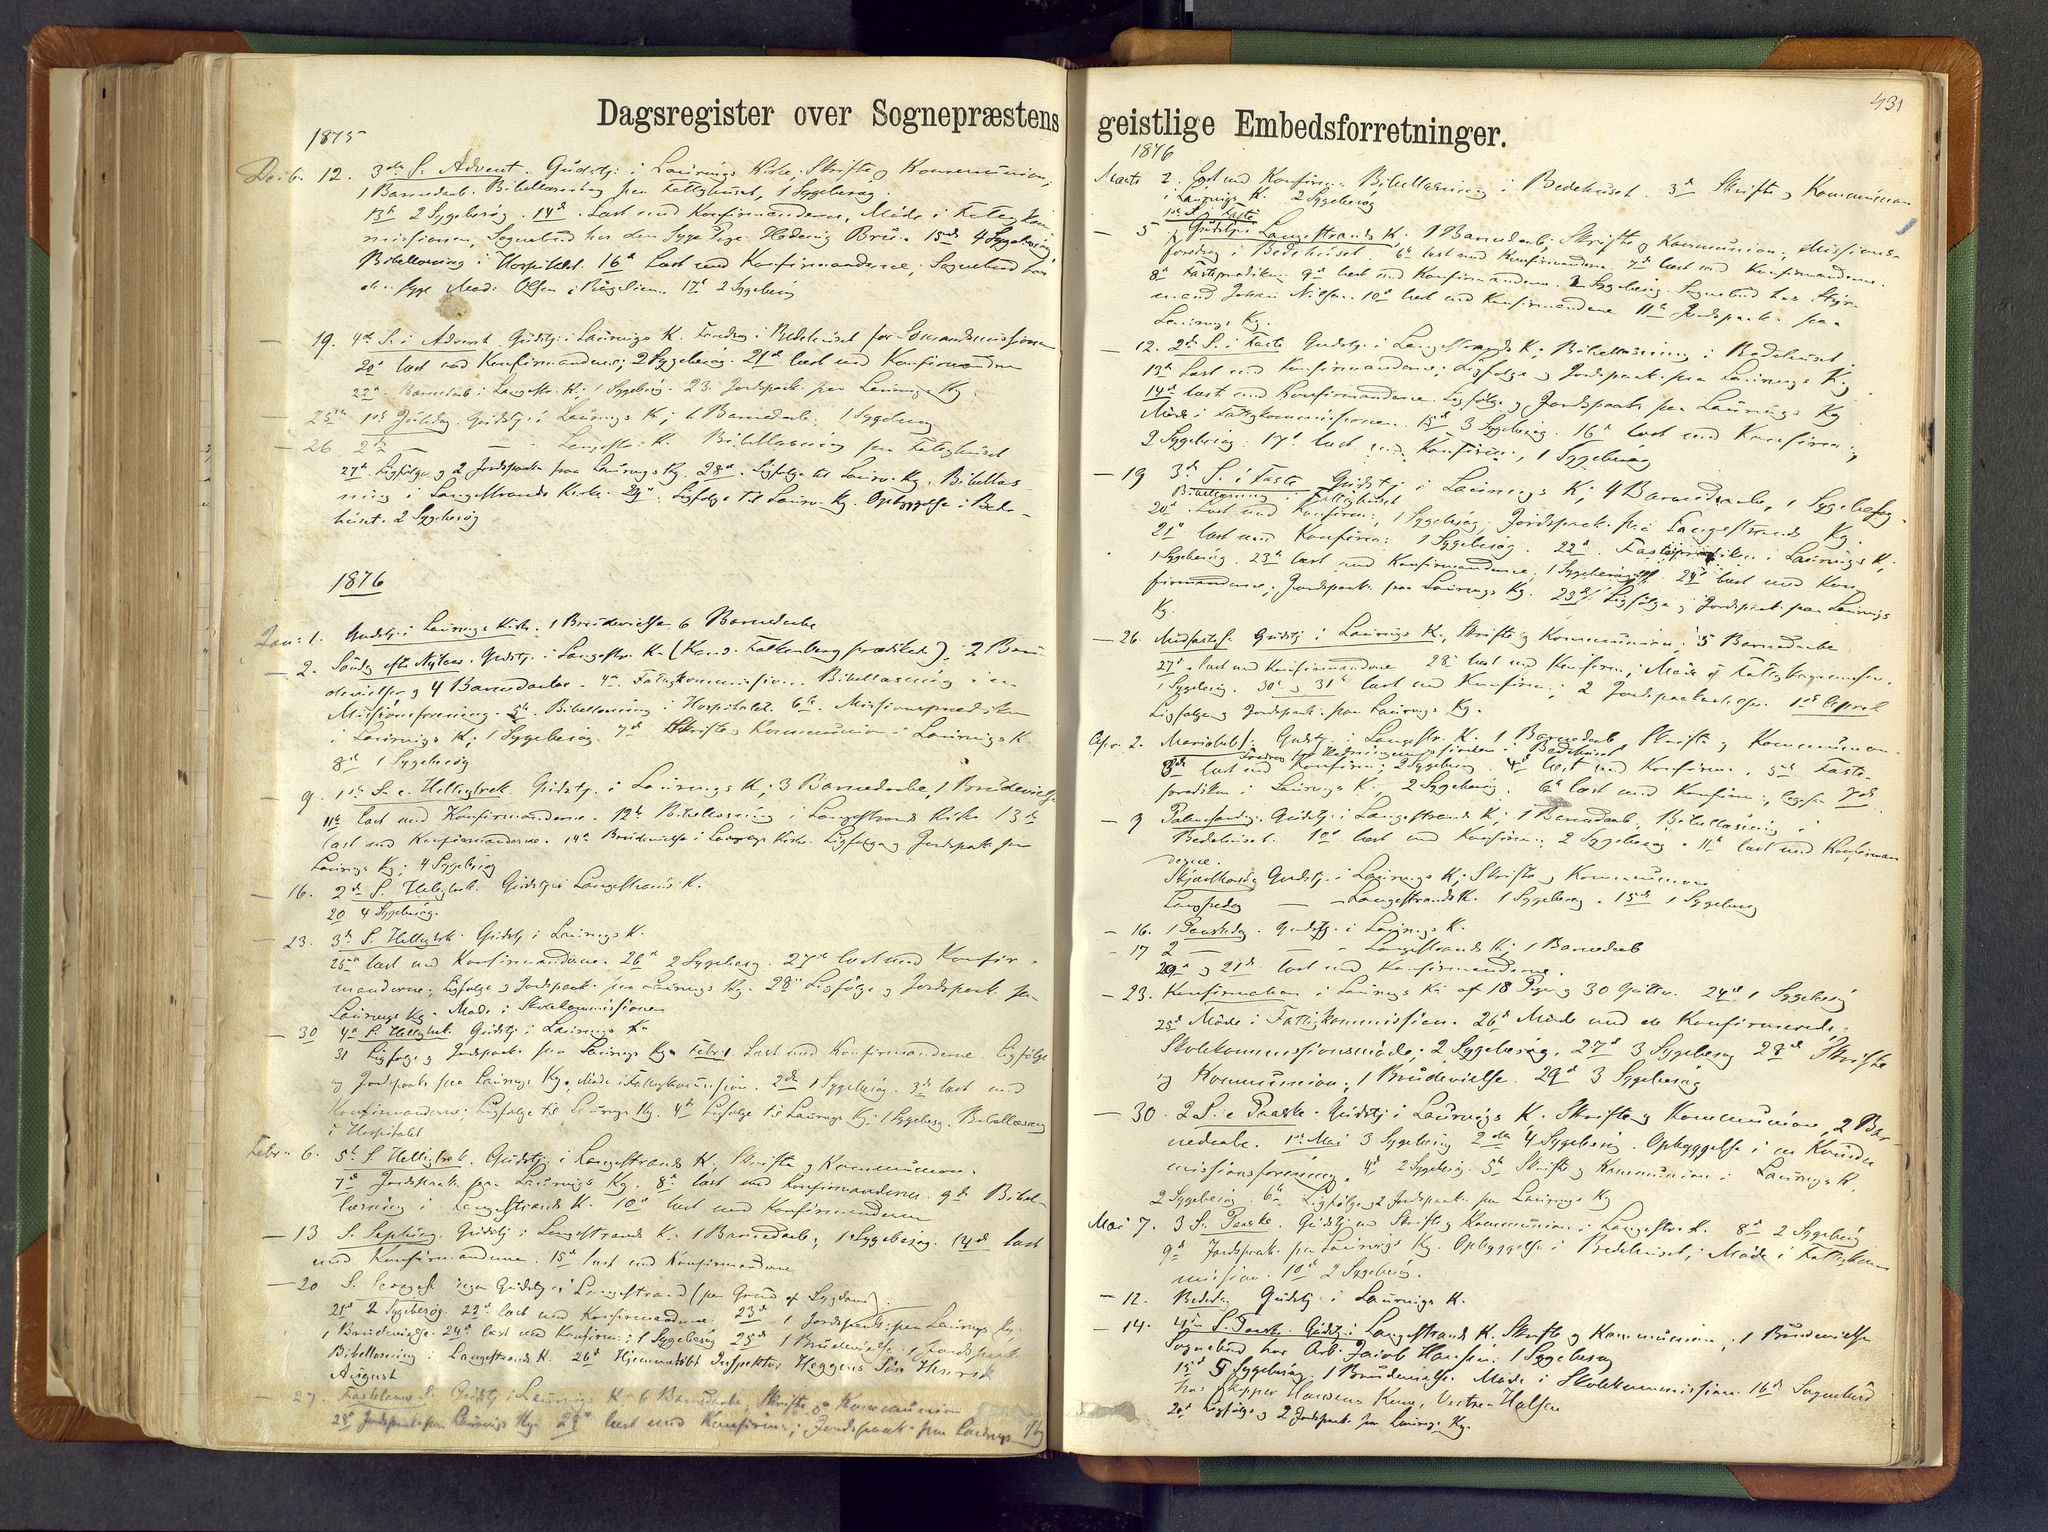 Dagsregister over Sognepræstens
1875
Dec. 12. 3de S. Advent. Gudstj. i Laurvigs Kirke, Skrifte og Kommunion,
1 Barnedaab. Bibellæsning paa Fattighuset, 1 Sygebesøg.
13de 2 Sygebesøg. 14de. Læst med Konfirmanderne, Møde i Fattigkom
missionen, Sognebud hos den syge Pige Hedevig Bruu. 15de 4 Sygebesøg
Bibellæsning i Hospitalet. 16de Læst med Konfirmanderne, Sognebud hos
den syge Mad. Olsen i Bøgelien. 17de 2 Sygebesøg
— 19. 4de S. i Advent. Gudstj. i Laurvigs K. Foredrag i Bedehuset for Sømandsmissionen
20de læst med Konfirmanderne; 2 Sygebesøg. 21de læst med Konfirmanderne
22de. Barnedaab i Langestr. K.; 1 Sygebesøg. 23. Jordspaak. paa Laurvigs Kg.
— 25de 1ste Juledag. Gudstj. i Laurvigs K; 6 Barnedaab; 1 Sygebesøg
— 26. 2den — — Langestr. K. Bibellæsning paa Fattighuset
27de. Ligfølge og 2 Jordspaak. paa Laurvigs Kg. 28de. Ligfølge til Laurv. Kg. Bibellæs-
ning i Langestrands Kirke. 29de. Ligfølge til Laurv. Kg. Opbyggelse i Bede-
huset. 2 Sygebesøg
1876
Jan: 1. Gudstj. i Laurvigs Kirke. 1 Brudevielse 6 Barnedaabe
— 2. Søndag efter Nytaar. Gudstj. i Langestr. K. (Kand. Falkenberg prædikede); 2 Bru
devielser og 4 Barnedaabe. 4de. Fattigkommission. Bibellæsning i en
Missionsforening. 5te. Bibellæsning i Hospitalet. 6te. Missionsprædiken
i Laurvigs K; 1 Sygebesøg. 7de Skrifte og Kommunion i Laurvigs K.
8de 1 Sygebesøg
— 9. 1ste S. e. Helligtrek. Gudstj. i Laurvigs K; 3 Barnedaabe, 1 Brudevielse
11te læst med Konfirmanderne. 12te Bibellæsning i Langestrands Kirke 13de
læst med Konfirmanderne. 14de Brudevielse i Laurvigs Kirke. Ligfølge og Jordspaak. paa
Laurvigs Kg; 4 Sygebesøg
— 16. 2de S. Helligtrek. Gudstj. i Langestrands K.
20 4 Sygebesøg.
— 23. 3de S. Helligtrek. Gudstj. i Laurvigs K.
25de læst med Konfirmanderne 26de 2 Sygebesøg. 27de læst med Konfir-
manderne; Ligfølge og Jordspaak. paa Laurvigs Kg. 28de Ligfølge og Jordspaak. pa
Laurvigs Kg. Møde i Skolekommissionen
— 30 4de S. Helligtrek. Gudstj. i Laurvigs K.
31 Ligfølge og Jordspaak. paa Laurvigs Kg. Febr. 1. Læst med Konfirmanderne. Ligfølge
og Jordspaak. paa Laurvigs Kg., Møde i Fattigkommission. 2den 1 Sygebesøg. 3de læst med
Konfirmanderne; Ligfølge til Laurvigs Kg. 4de Ligfølge til Laurvigs Kg; 1 Sygebesøg. Bibellæsning
i Hospitalet
Febr. 6. 5te S. Helligtrek. Gudstj. i Langestrands K, Skrifte og Kommunion.
7de Jordspaak. paa Laurvigs Kg. 8de læst med Konfirmanderne. 9de Bibel-
læsning i Langestrands K. 10de læst med Konfirmanderne
— 13 S. Septuag. Gudstj. i Langestrands K. 1 Barnedaab; 1 Sygebesøg. 14de læst
med Konfirmanderne. 15de læst med Konfirmanderne
— 20 S. Sexages. ingen Gudstj. i Langestrand (paa Grund af Sygdom).
21de 2 Sygebesøg. 22de læst med Konfirmanderne. 23de 1 Jordspaak. paa Laurvigs Kg.
1 Brudevielse. 24de læst med Konfirm.; 1 Sygebesøg 25de 1 Brudevielse; 1 Jordspaak.
Bibellæsning i Langestrands K. 26de Hjemmedøbt Inspektør Heggens Søn Henrik
August
— 27. Fastelavns S. Gudstj. i Laurvigs K. 6 Barnedaabe, Skrifte og Kommunion
28de Jordspaak. paa Laurvigs Kg. 29de læst med Konfirm.; Jordspaak. paa Laurvigs Kg
geistlige Embedsforretninger.
431
1876
Marts 2. læst med Konfirm. Bibellæsning i Bedehuset. 3de Skrifte og Kommunion
i Laurvigs K. 2 Sygebesøg
1ste S. i Faste
— 5 Gudstj. i Langestrands K; 1 Barnedaab; Skrifte og Kommunion; Missions-
foredrag i Bedehuset 6te læst med Konfirmanderne. 7de læst med Konfirmanderne.
8de Fasteprædiken. 9de læst med Konfirmanderne. 2 Sygebesøg. Sognebud hos Styr
mand Johan Nilsen. 10de læst med Konfirmanderne 11te Jordspaak. paa
Laurvigs Kg.
— 12. 2den S. i Faste Gudstj. i Langestrands K; Bibellæsning i Bedehuset.
13de læst med Konfirmanderne. Ligfølge og Jordspaak. paa Laurvigs Kg
14de læst med Konfirmanderne. Ligfølge og Jordspaak. paa Laurvigs Kg
Møde i Fattigkommissionen. 15de 3 Sygebesøg. 16de læst med Konfirm.;
2 Sygebesøg. 17de læst med Konfirm., 1 Sygebesøg
— 19 3de S. i Faste Gudstj. i Laurvigs K; 4 Barnedaabe, 1 Sygebesøg.
Bibellæsning i Fattighuset
20de. læst med Konfirm.; 1 Sygebesøg; Jordspaak. paa Langestrands Kg.
21de læst med Konfirm.; 1 Sygebesøg. 22de. Fasteprædiken i Laurvigs K;
1 Sygebesøg. 23de læst med Konfirmanderne; 1 Sygebesøg. 24de læst med Kon
firmanderne; Jordspaak. paa Laurvigs Kg. 25de Ligfølge og Jordspaak. paa Laurvigs
Kg.
— 26. Midfaste S. Gudstj. i Laurvigs K., Skrifte og Kommunion; 5 Barnedaabe
27de. læst med Konfirmanderne 28de læst med Konfirm.; Møde i Fattigkommission.
1 Sygebesøg. 30te og 31te læst med Konfirm.; 2 Jordspaakastelser. 1ste April
Ligfølge og Jordspaak. paa Laurvigs Kg.
Apr. 2. Mariæbeb. Gudstj. i Langestr. K. 1 Barnedaab Skrifte og Kommunion.
Foredrag for Hedningemissionen i Bedehuset
3de læst med Konfirm.; 2 Sygebesøg. 4de læst med Konfirm. 5te Faste-
prædiken i Laurvigs K., 2 Sygebesøg. 6te læst med Konfirm.; ligesaa 7de
— 9 Palmesøndag. Gudstj. i Langestrands K; 1 Barnedaab; Bibellæsning i
Bedehuset. 10de læst med Konfirm.; 2 Sygebesøg. 11te læst med Konfirman
derne.
Skjærtorsdag Gudstj. i Laurvigs K; Skrifte og Kommunion
Langfredag — — Langestrands K. 1 Sygebesøg. 15de 1 Sygebesøg
— 16. 1 Paaskedag. Gudstj. i Laurvigs K.
— 17 2 — — — Langestrands K; 1 Barnedaab
20de og 21de læst med Konfirmanderne.
— 23. Konfirmation i Laurvigs K. af 18 Piger og 30 Gutter. 24de 1 Sygebesøg
25de Møde i Fattigkommission. 26de Møde med de Konfirmerede.
Skolekommissionsmøde; 2 Sygebesøg. 27de 3 Sygebesøg 28de Skrifte
og Kommunion; 1 Brudevielse. 29de 3 Sygebesøg
— 30. 2 S. e. Paaske. Gudstj. i Laurvigs K. Skrifte og Kommunion, 2 Bar-
nedaabe. 1ste Mai 3 Sygebesøg 2den 4 Sygebesøg. Opbyggelse i en Kvinde
missionsforening. 4de 2 Sygebesøg. 5te Skrifte og Kommunion i Laurvigs K.
2 Sygebesøg. 6te Ligfølge, 2 Jordspaak. paa Laurvigs Kg
Mai 7. 3 S. Paaske. Gudstj. med Skrifte og Kommunion i Langestr. K. 8de 2 Sygebesøg
9de Jordspaak. paa Laurvigs Kg. Opbyggelse i Bedehuset; Møde i Fattigkom
mission. 10de 2 Sygebesøg.
— 12. Bededag Gudstj. i Laurvigs K.
— 14. 4de S. Paaske. Gudstj. i Langestrands K. Skrifte og Kommunion, 1 Brudevielse
Sognebud hos Arb. Jacob Hansen; 1 Sygebesøg
15de 5 Sygebesøg; 1 Brudevielse. Møde i Skolekommissionen 16de Sognebud
hos Skipper Hansens Kone, Vestre Halsen
20de Ligfølge og 2 Jordspaak. paa Laurvigs Kg.